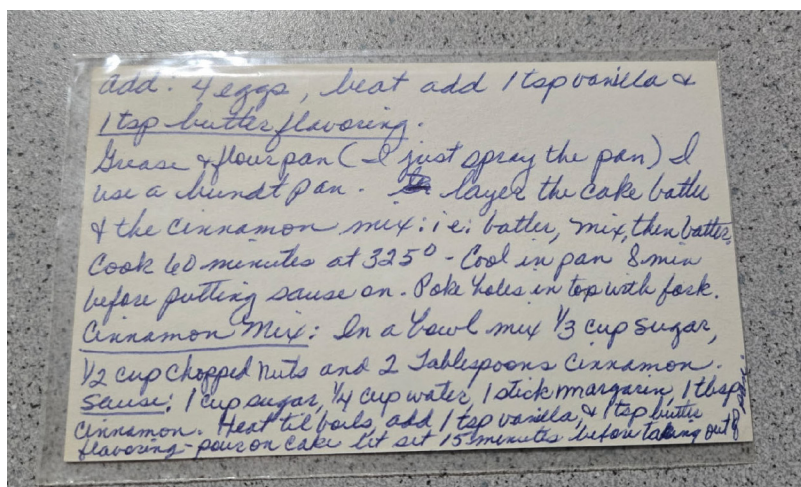 add: 4 eggs, beat add 1 tsp vanilla &
1 tsp butter flavoring.
Grease & flour pan (I just spray the pan) I
use a bundt pan. layer the cake batter
& the cinnamon mix: i e: batter, mix, then batter.
Cook 60 minutes at 325° - Cool in pan 8 min
before putting sause on. Poke holes in top with fork.
Cinnamon Mix: In a bowl mix 1/3 cup sugar,
1/2 cup chopped nuts and 2 Tablespoons Cinnamon.
Sause: 1 cup sugar, 1/4 cup water, 1 stick margarin, 1 tbsp
cinnamon. Heat til boils, add 1 tsp vanilla, & 1 tsp butter
flavoring - pour on cake let set 15 minutes before taking out of pan.